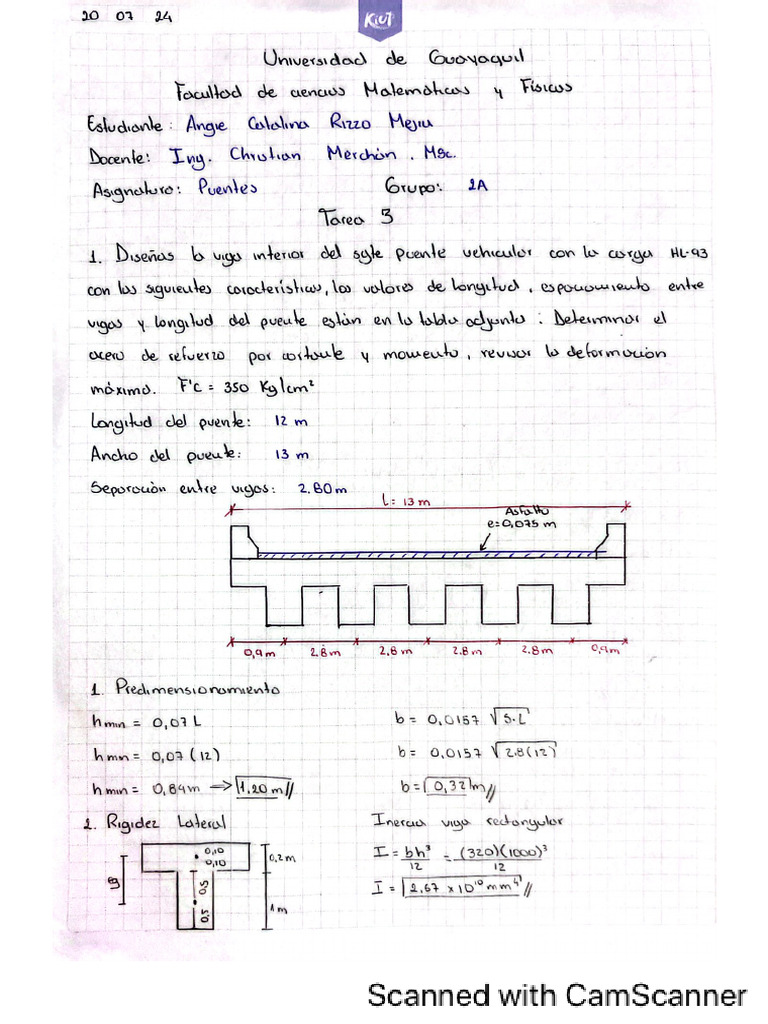 20 07 24
Kiut
Universidad de Guayaquil
Facultad de ciencias Matemáticas y Físicas
Estudiante: Angie Catalina Rizzo Mejia
Docente: Ing. Christian Merchán. MSc.
Asignatura: Puentes Grupo: 2A
Tarea 3
1. Diseñas la viga interior del sgte puente vehicular con la carga HL-93
con las siguientes características, los valores de longitud, espaciamiento entre
vigas y longitud del puente están en la tabla adjunta: Determinar el
acero de refuerzo por cortante y momento, revisar la deformación
máxima. F'c = 350 Kg/cm²
Longitud del puente: 12 m
Ancho del puente: 13 m
Separación entre vigas: 2.80m
L= 13 m
Asfalto
e=0,075 m
0,9m 2.8m 2,8m 2.8m 2.8m 0,9m
1. Predimensionamiento
h min = 0,07 L b = 0,0157 √S.L
h min = 0,07 (12) b = 0,0157 √2.8(12)
h min = 0,84m → 1,20 m// b = 0,32 m//
2. Rigidez Lateral Inercia viga rectangular
0,10
0,10 0,2m I = bh³/12 = (320)(1000)³/12
eg 0,5 I = 2,67 x 10¹⁰ mm⁴//
0,5 1m
Scanned with CamScanner